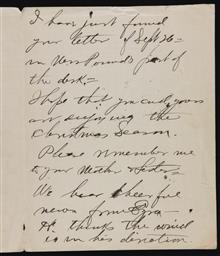 I have just found
your letter of Sept 26 -
in Mrs Pound's part of
the desk. -
I hope that you and yours
are enjoying the
Christmas Season.
Please remember me
to your Mother &
We hear cheerful
news from Ezra -
He thinks the world
is in his direction.